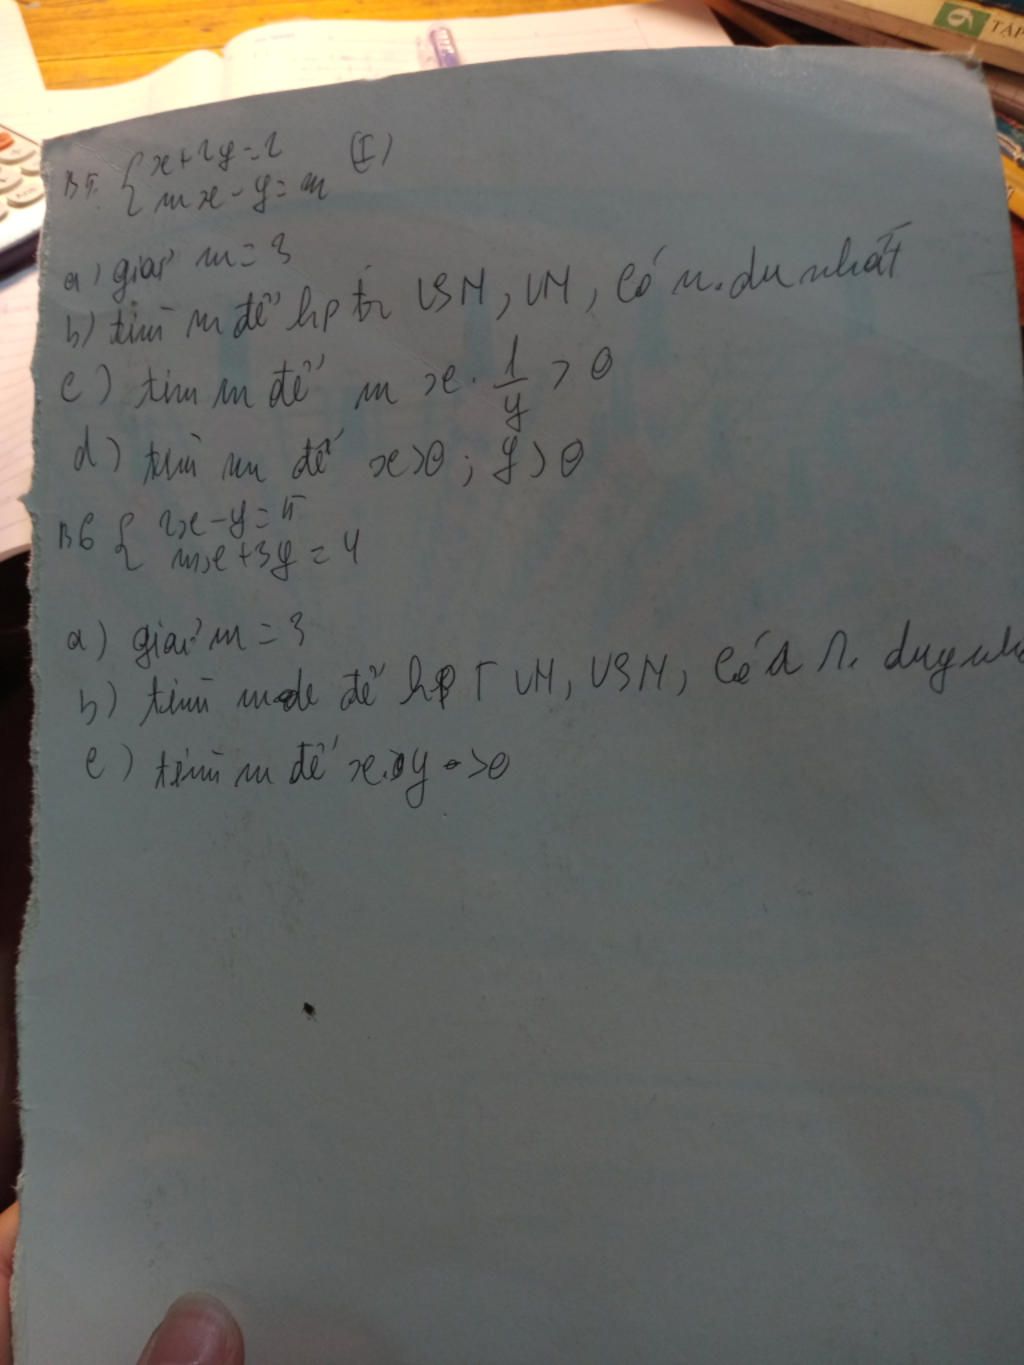 6
TẬP
B5. { x + 2y = 2 (I)
mx - y = m
a) giải m = 3
b) tìm m để hpt VSN, VN, có n. du nhất
c) tìm m để m x . 1/y > 0
d) tìm m để x > 0 ; y > 0
B6 { 2x - y = 5
mx + 3y = 4
a) giải m = 3
b) tìm m để hpT VN, VSN, có n. duy nh
c) tìm m để x . y > 0